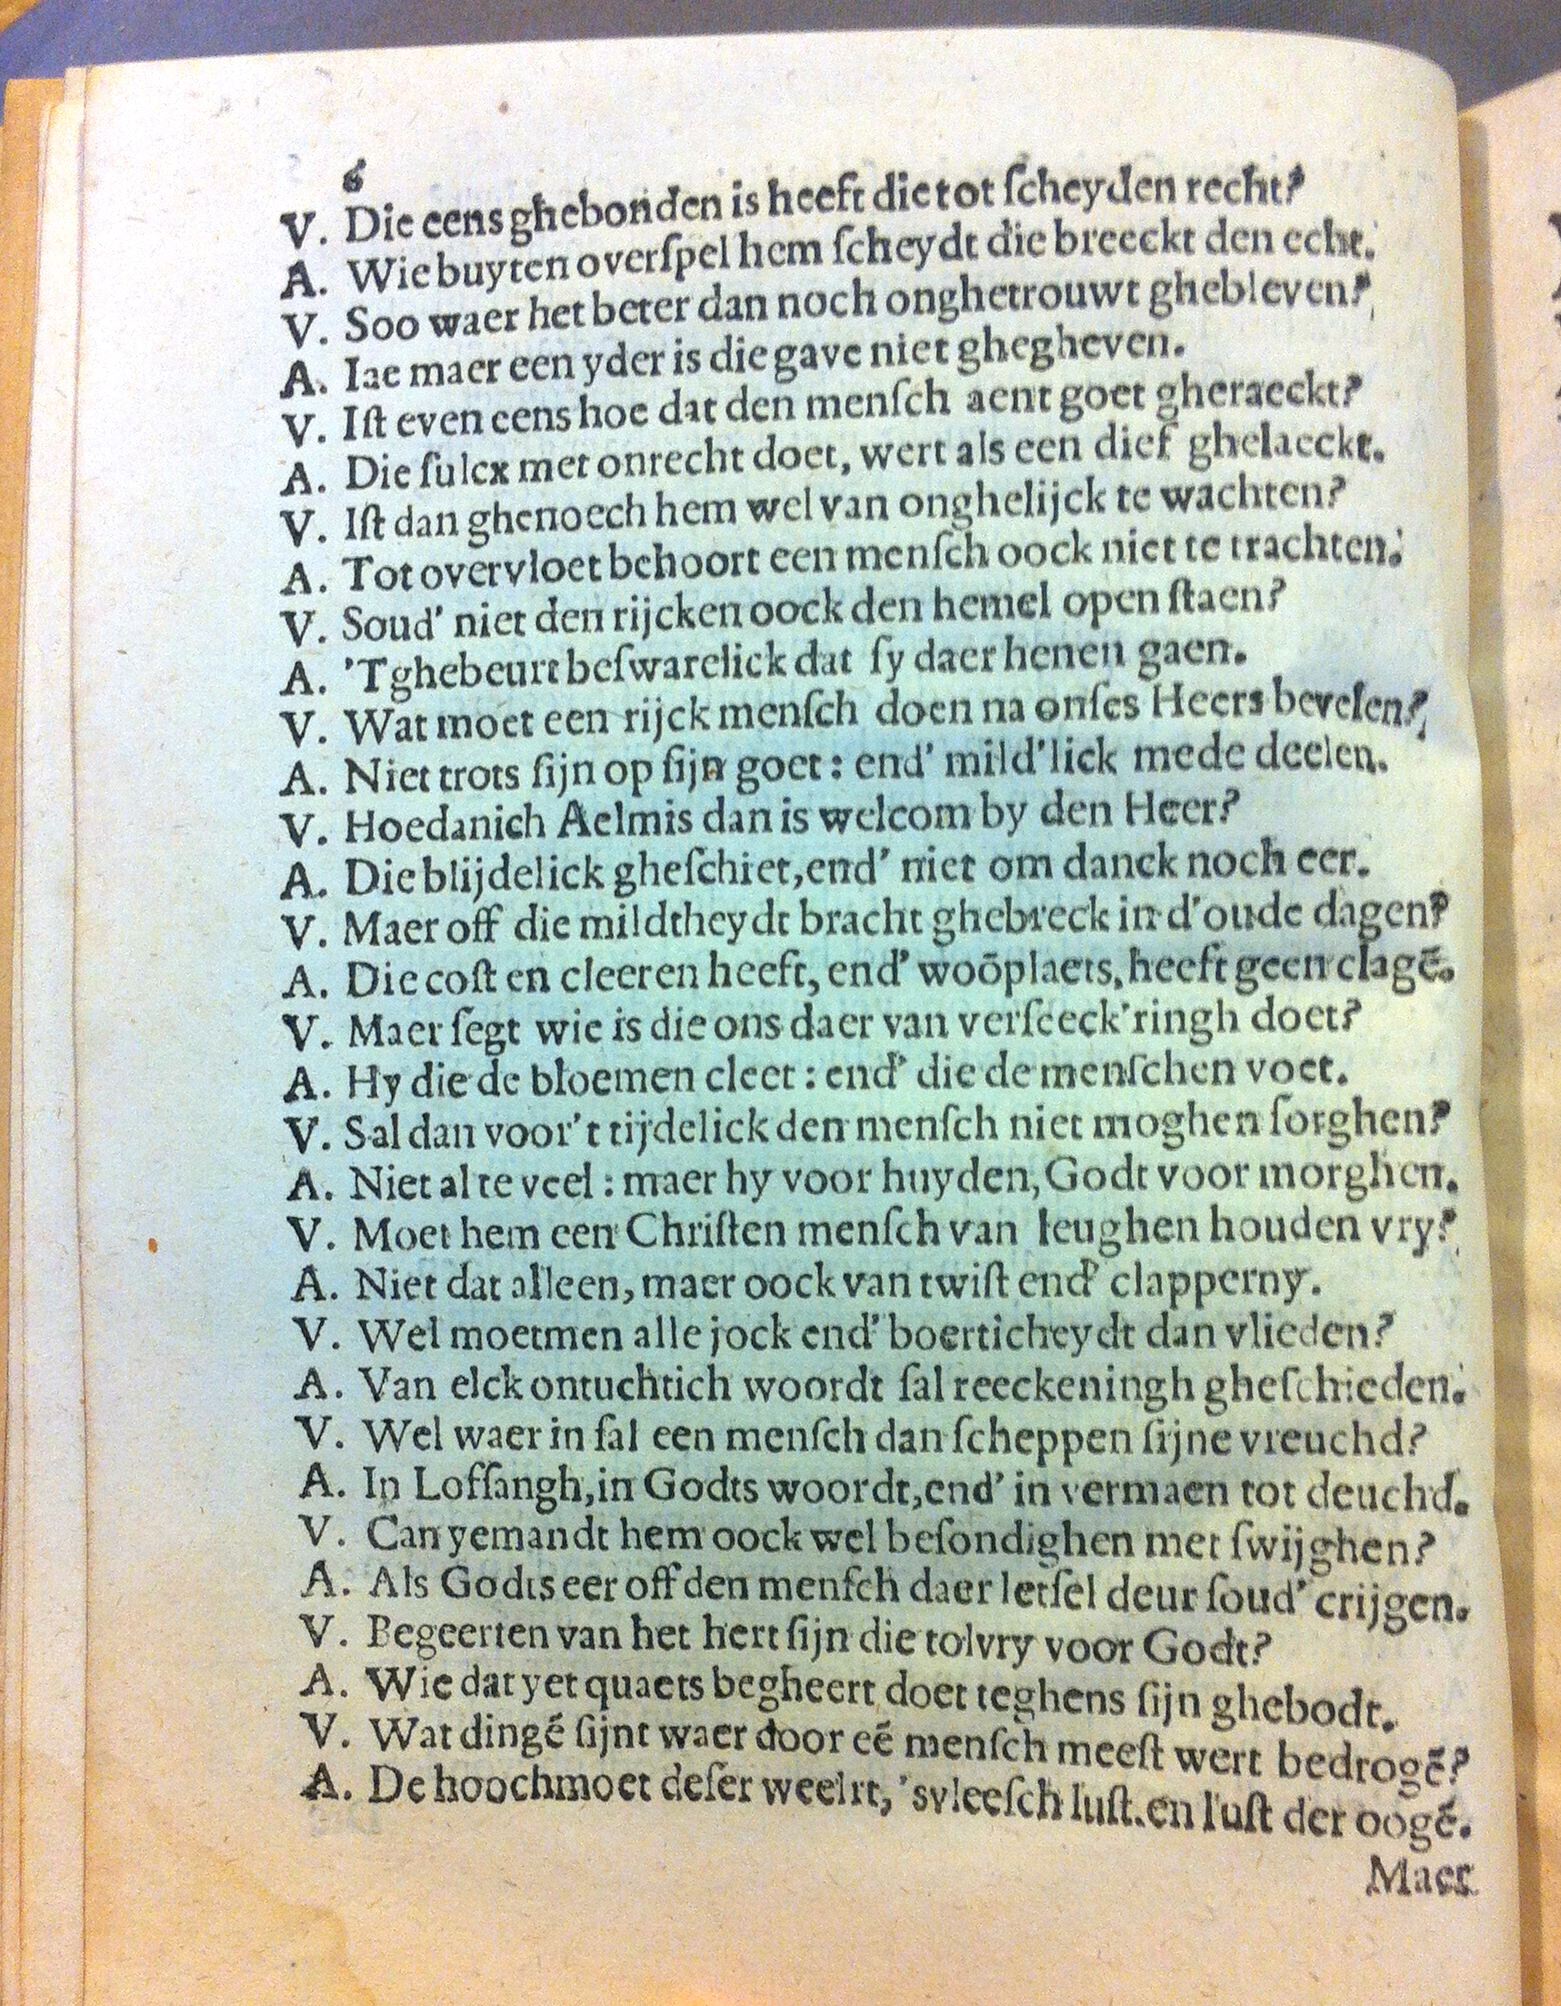 6
V. Die eens ghebonden is heeft die tot ſcheyden recht?
A. Wie buyten overſpel hem ſcheydt die breeckt den echt.
V. Soo waer het beter dan noch onghetrouwt ghebleven?
A. Iae maer een yder is die gave niet ghegheven.
V. Iſt even eens hoe dat den menſch aent goet gheraeckt?
A. Die ſulcx met onrecht doet, wert als een dief ghelaeckt.
V. Iſt dan ghenoech hem wel van onghelijck te wachten?
A. Tot overvloet behoort een menſch oock niet te trachten.
V. Soud' niet den rijcken oock den hemel open ſtaen?
A. 'Tghebeurt beſwarelick dat ſy daer henen gaen.
V. Wat moet een rijck menſch doen na onſes Heers bevelen?
A. Niet trots ſijn op ſijn goet: end' mild'lick mede deelen.
V. Hoedanich Aelmis dan is welcom by den Heer?
A. Die blijdelick gheſchiet, end' niet om danck noch eer.
V. Maer off die mildtheydt bracht ghebreck in d'oude dagen?
A. Die coſt en cleeren heeft, end' woõplaets, heeft geen clagẽ.
V. Maer ſegt wie is die ons daer van verſeeck'ringh doet?
A. Hy die de bloemen cleet: end' die de menſchen voet.
V. Sal dan voor't tijdelick den menſch niet moghen ſorghen?
A. Niet al te veel: maer hy voor huyden, Godt voor morghen.
V. Moet hem een Chriſten menſch van leughen houden vry?
A. Niet dat alleen, maer oock van twiſt end' clapperny.
V. Wel moetmen alle jock end' boerticheydt dan vlieden?
A. Van elck ontuchtich woordt ſal reeckeningh gheſchieden.
V. Wel waer in ſal een menſch dan ſcheppen ſijne vreuchd?
A. In Lofſangh, in Godts woordt, end' in vermaen tot deuchd.
V. Can yemandt hem oock wel beſondighen met ſwijghen?
A. Als Godts eer off den menſch daer letſel deur ſoud' crijgen.
V. Begeerten van het hert ſijn die tolvry voor Godt?
A. Wie dat yet quaets begheert doet teghens ſijn ghebodt.
V. Wat dingẽ ſijnt waer door eẽ menſch meeſt wert bedrogẽ?
A. De hoochmoet deſer weelrt, 'svleeſch luſt. en luſt der oogẽ.
Maer